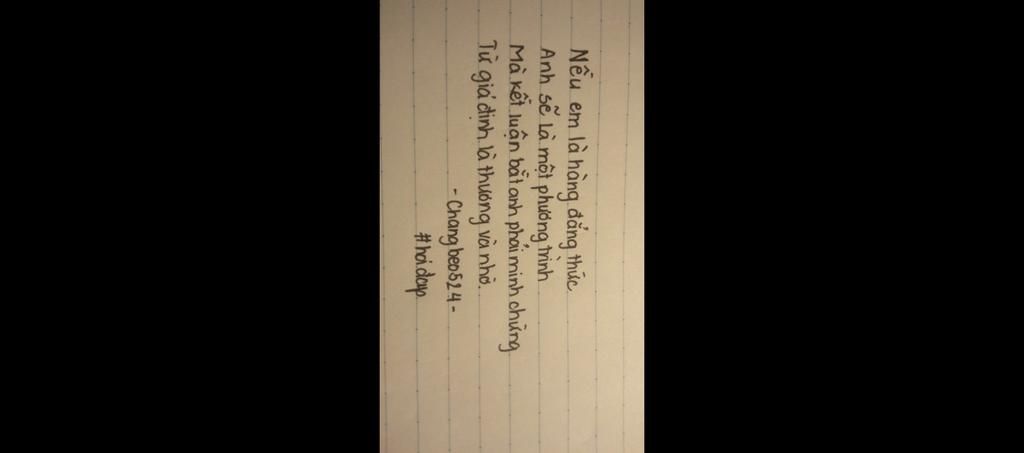 Nếu em là hàng đẳng thức
Anh sẽ là một phương trình
Mà kết luận bắt anh phải minh chứng
Từ giả định là thương và nhớ.
- Changbeo524 -
#hoidap